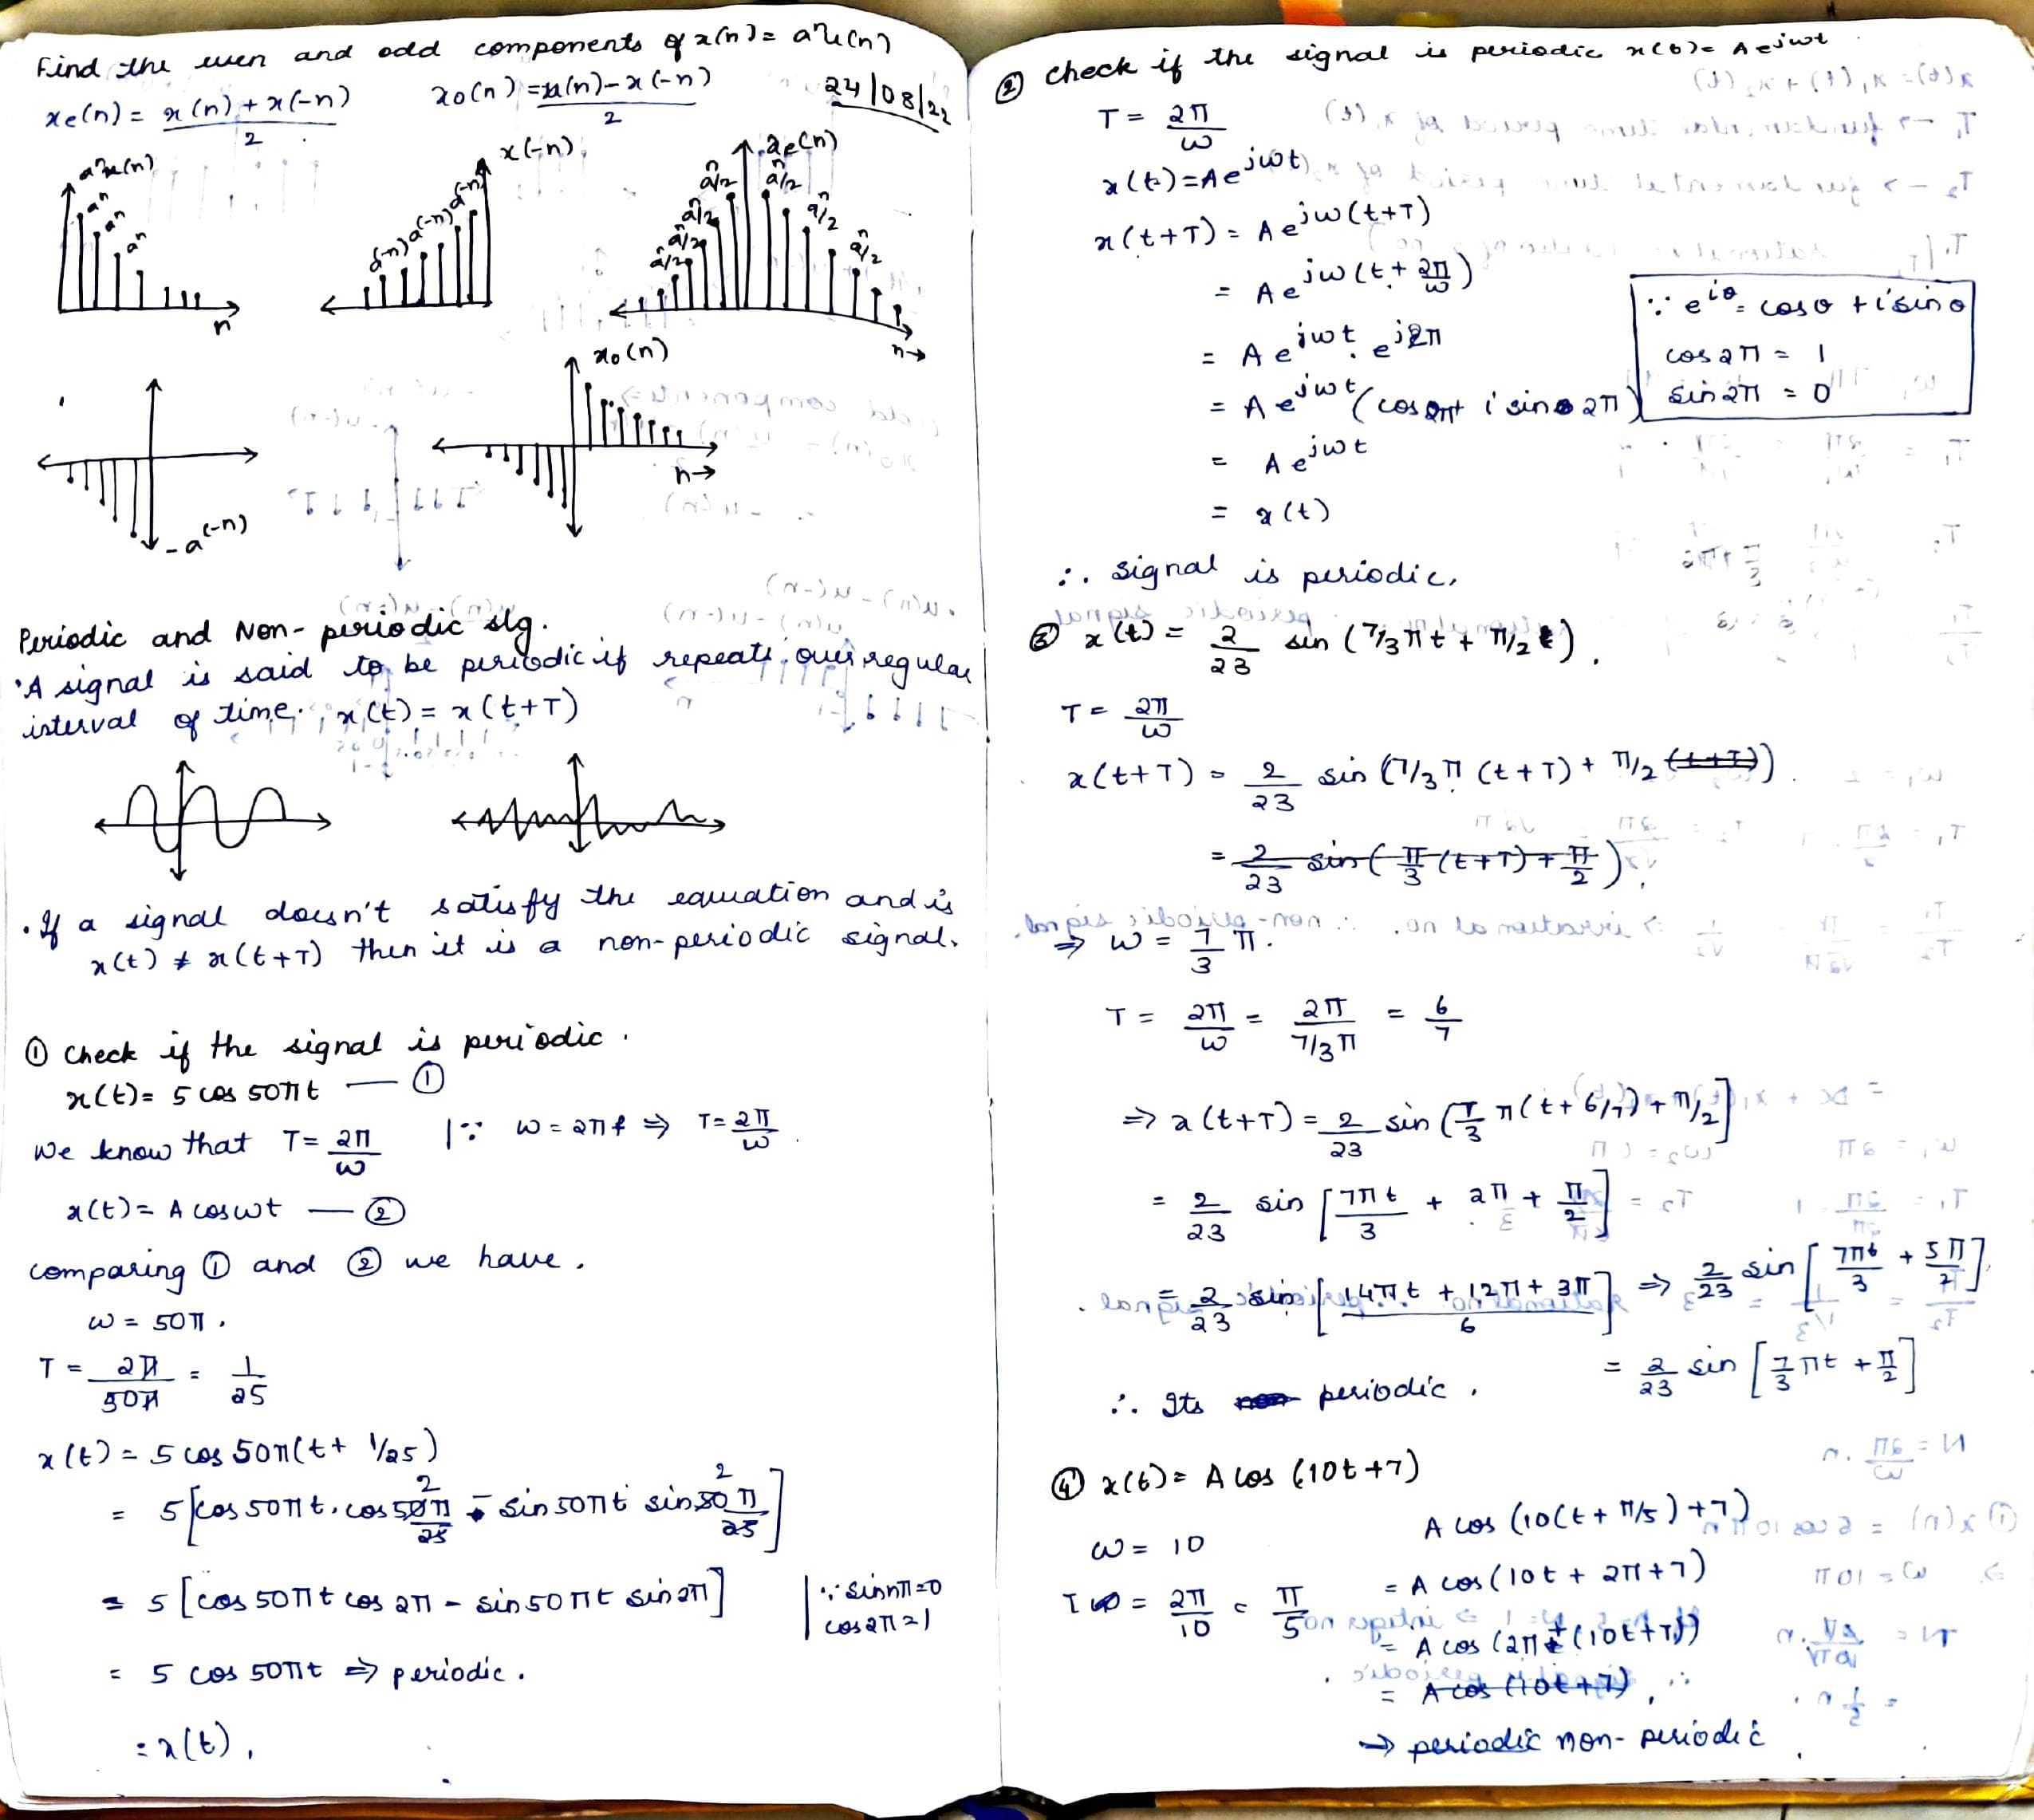 Find the even and odd components of x(n) = aⁿu(n)
xe(n) = x(n) + x(-n) / 2
xo(n) = x(n) - x(-n) / 2
24/08/22
aⁿu(n)
aⁿ
aⁿ
aⁿ
n
x(-n)
a(-n) a(-n) a(-n)
xe(n)
aⁿ/2 aⁿ/2
aⁿ/2 aⁿ/2
aⁿ/2 aⁿ/2
aⁿ/2
n→
-a(-n)
xo(n)
n→
Periodic and Non-periodic sig.
• A signal is said to be periodic if repeats over regular
interval of time. x(t) = x(t+T)
• If a signal doesn't satisfy the equation and is
x(t) ≠ x(t+T) then it is a non-periodic signal.
① Check if the signal is periodic.
x(t) = 5 cos 50πt — ①
We know that T = 2π/ω | ∵ ω = 2πf ⇒ T = 2π/ω
x(t) = A cos ωt — ②
comparing ① and ② we have.
ω = 50π.
T = 2π/50π = 1/25
x(t) = 5 cos 50π(t + 1/25)
= 5[cos 50πt. cos 50π/25 - sin 50πt sin 50π/25]
= 5 [cos 50πt cos 2π - sin 50πt sin 2π] | ∵ sin nπ = 0
cos 2π = 1
= 5 cos 50πt ⇒ periodic.
= x(t),
② Check if the signal is periodic x(t) = A e^jωt
T = 2π/ω
x(t) = A e^jωt
x(t+T) = A e^jω(t+T)
= A e^jω(t + 2π/ω)
= A e^jωt . e^j2π
= A e^jωt (cos 2π + i sin 2π)
∵ e^iθ = cos θ + i sin θ
cos 2π = 1
sin 2π = 0
= A e^jωt
= x(t)
∴ signal is periodic.
③ x(t) = 2/23 sin (7/3 πt + π/2).
T = 2π/ω
x(t+T) = 2/23 sin (7/3 π (t+T) + π/2 (t+T)).
= 2/23 sin (π/3 (t+T) + π/2).
⇒ ω = 7/3 π.
T = 2π/ω = 2π / 7/3 π = 6/7
⇒ x(t+T) = 2/23 sin (7/3 π(t + 6/7) + π/2]
= 2/23 sin [7πt/3 + 2π + π/2]
= 2/23 sin [14πt + 12π + 3π / 6] ⇒ 2/23 sin [7πt/3 + 5π/2].
= 2/23 sin [7/3 πt + π/2]
∴ Its non periodic.
④ x(t) = A cos (10t + 7)
ω = 10
T = 2π/10 = π/5
A cos (10(t + π/5) + 7)
= A cos (10t + 2π + 7)
= A cos (2π + (10t + 7))
= A cos (10t + 7),
→ periodic non-periodic.